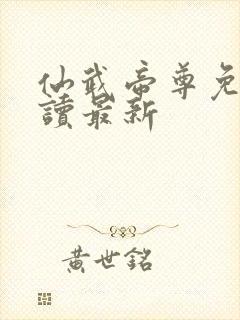 仙武帝尊免
讀最新
黃世銘